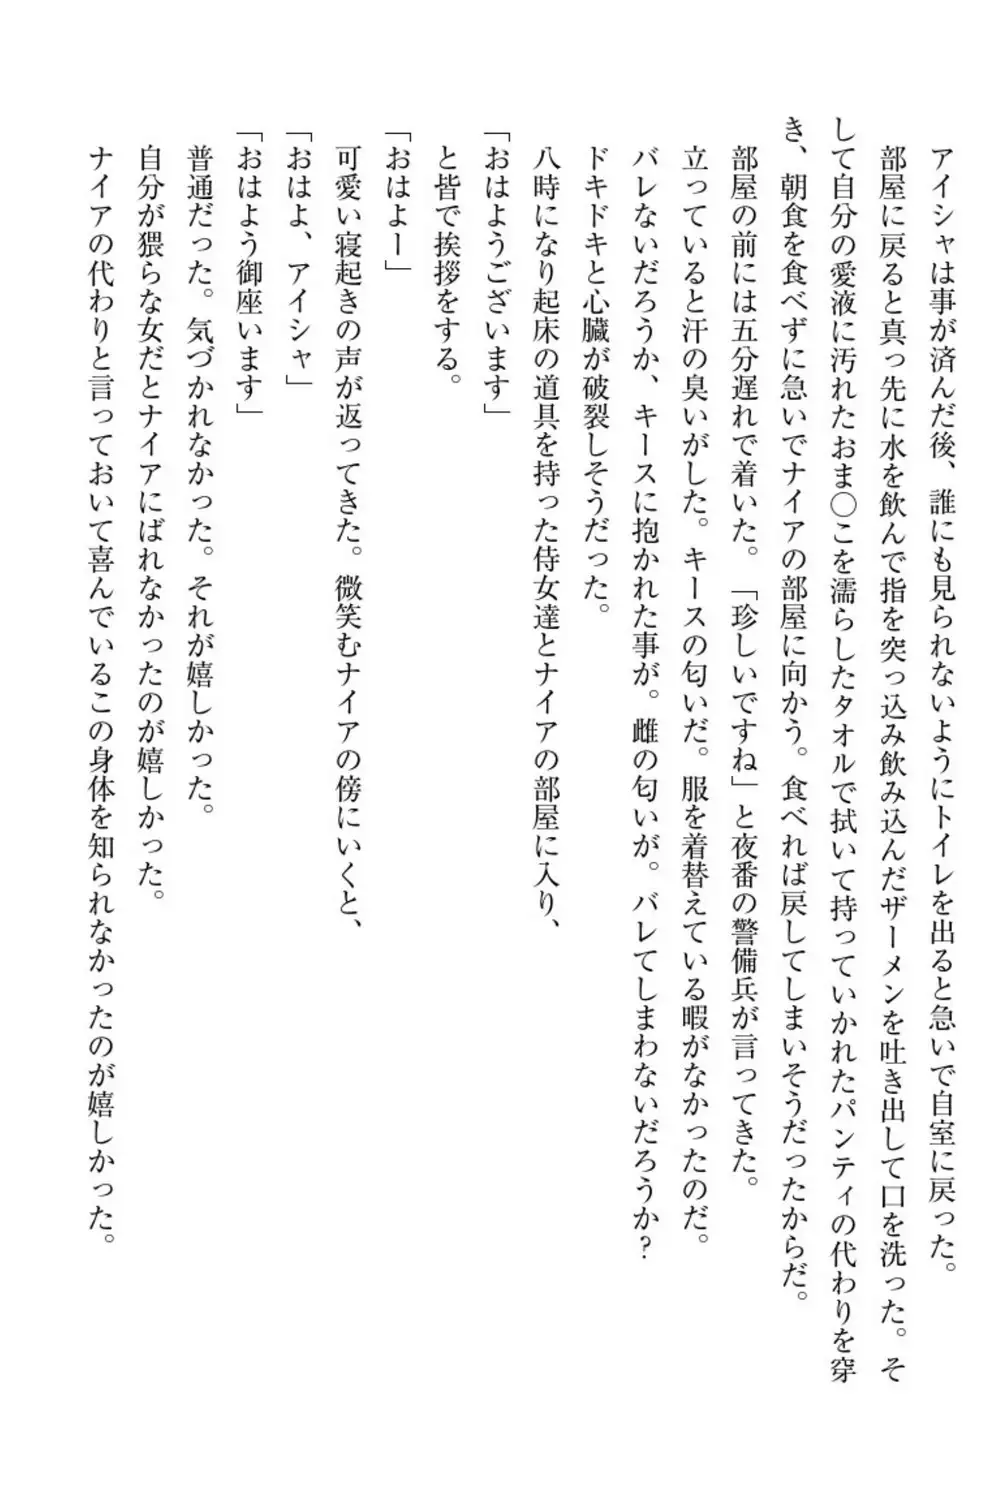 アイシャは事が済んだ後、誰にも見られないようにトイレを出ると急いで自室に戻った。
部屋に戻ると真っ先に水を飲んで指を突っ込み飲み込んだザーメンを吐き出して口を洗った。そ
して自分の愛液に汚れたおま〇こを濡らしたタオルで拭いて持っていかれたパンティの代わりを穿
き、朝食を食べずに急いでナイアの部屋に向かう。食べれば戻してしまいそうだったからだ。
部屋の前には五分遅れで着いた。「珍しいですね」と夜番の警備兵が言ってきた。
立っていると汗の臭いがした。キースの匂いだ。服を着替えている暇がなかったのだ。
バレないだろうか、キースに抱かれた事が。雌の匂いが。バレてしまわないだろうか?
ドキドキと心臓が破裂しそうだった。
八時になり起床の道具を持った侍女達とナイアの部屋に入り、
「おはようございます」
と皆で挨拶をする。
「おはよー」
可愛い寝起きの声が返ってきた。微笑むナイアの傍にいくと、
「おはよ、アイシャ」
「おはよう御座います」
普通だった。気づかれなかった。それが嬉しかった。
自分が猥らな女だとナイアにばれなかったのが嬉しかった。
ナイアの代わりと言っておいて喜んでいるこの身体を知られなかったのが嬉しかった。